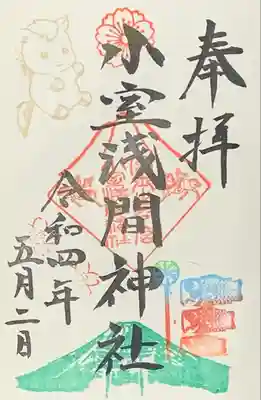 奉拝
小室浅間神社
令和四年
五月二日